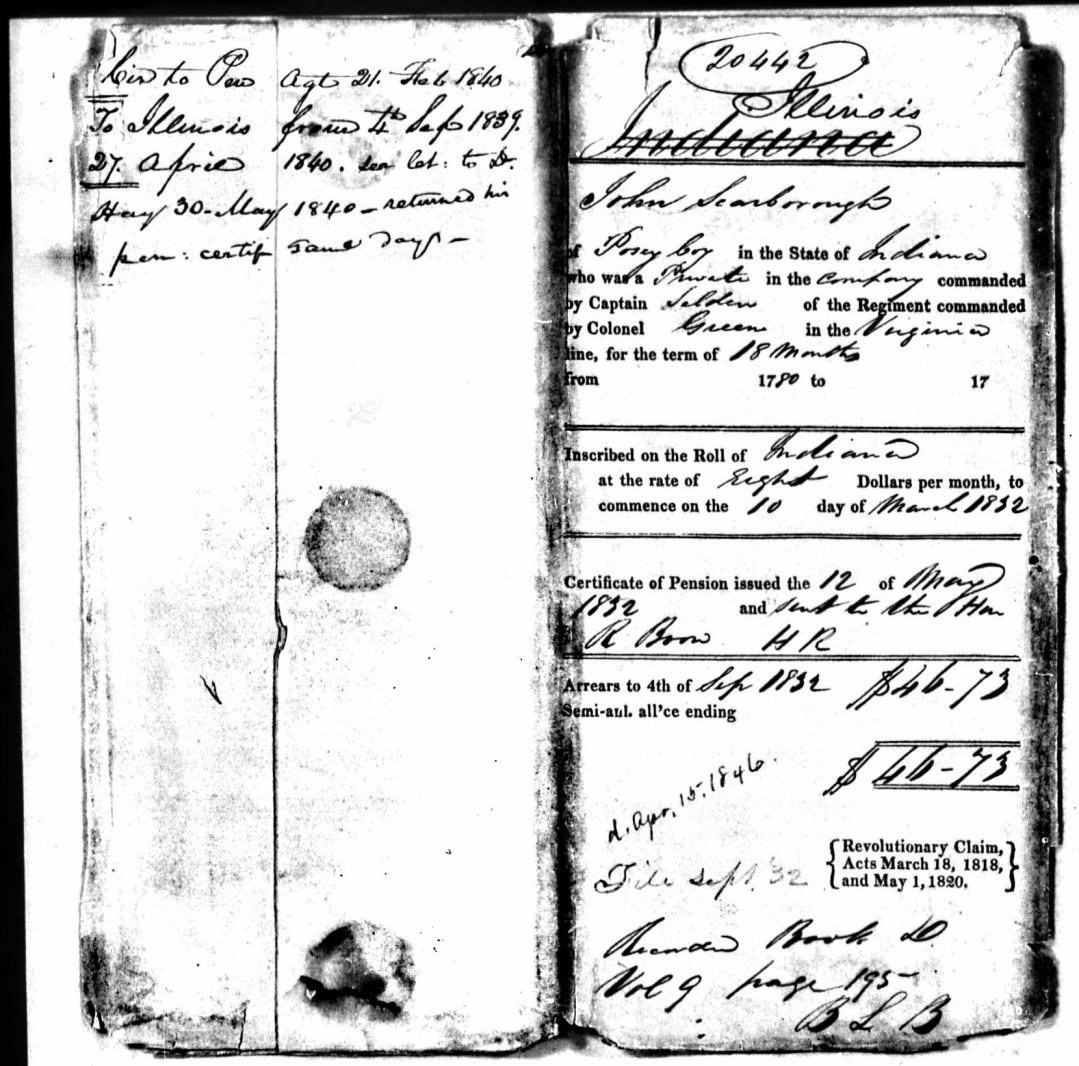 Cir to Pen Agt 21. Feb 1840
To Illinois from 4th Sep 1839.
27. April 1840. see let: to D.
Hay 30 - May 1840 - returned his
pen: certif same day -
20442
Illinois
Indiana
John Scarborough
of Posey Coy in the State of Indiana
who was a Private in the company commanded
by Captain Selden of the Regiment commanded
by Colonel Green in the Virginia
line, for the term of 18 Months
from 1780 to 17
Inscribed on the Roll of Indiana
at the rate of Eight Dollars per month, to
commence on the 10 day of March 1832
Certificate of Pension issued the 12 of May
1832 and sent to the Hon
R Boon H R
Arrears to 4th of Sep 1832 $46-73
Semi-anl. all'ce ending
$46-73
d. Apr. 15. 1846.
File Sept. 32
{Revolutionary Claim,
Acts March 18, 1818,
and May 1, 1820.}
Recorded Book D
Vol 9 page 195
B L B